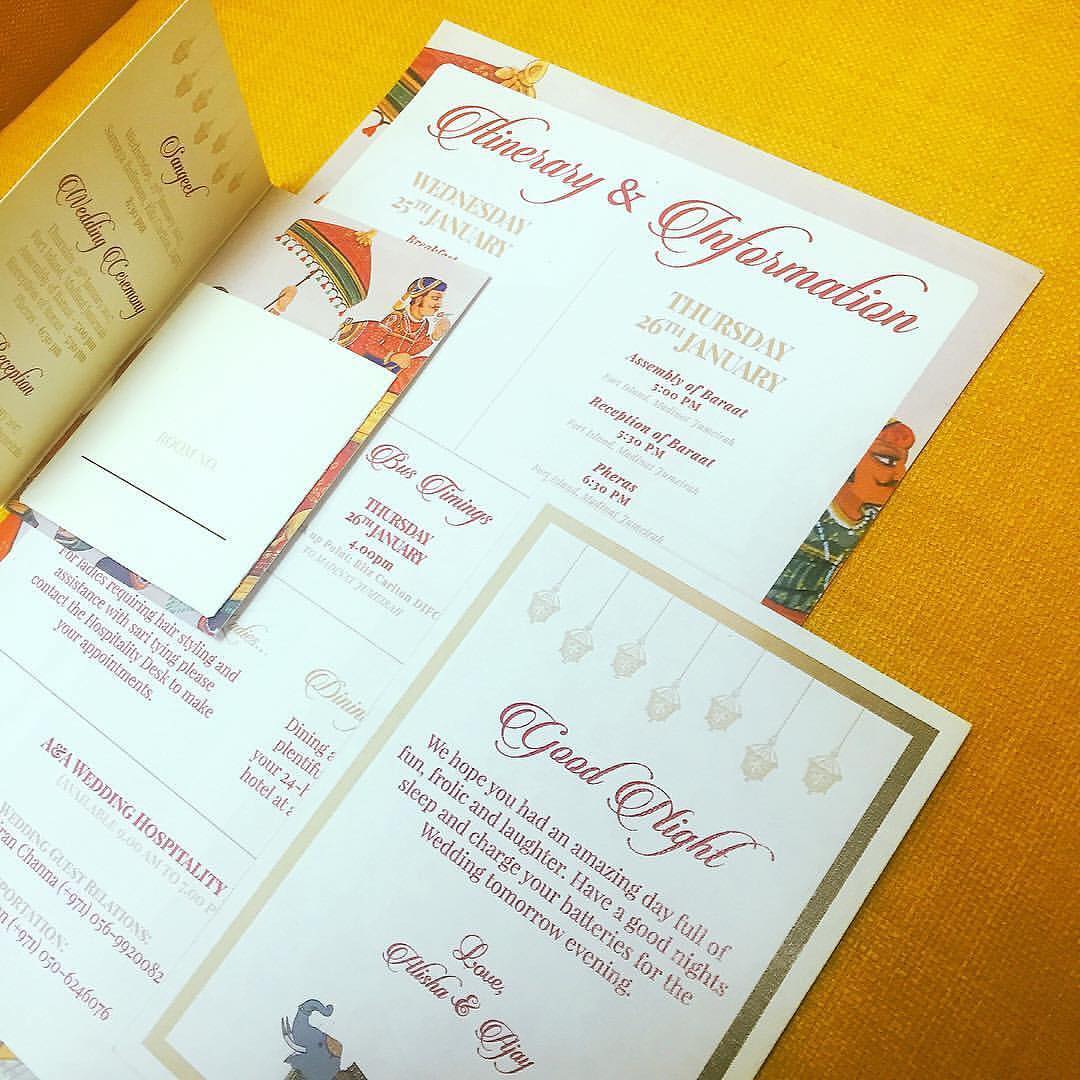 Itinerary & Information
WEDNESDAY
25TH JANUARY
Breakfast
THURSDAY
26TH JANUARY
Assembly of Baraat
5:00 PM
Fort Island, Madinat Jumeirah
Reception of Baraat
5:30 PM
Fort Island, Madinat Jumeirah
Pheras
6:30 PM
Fort Island, Madinat Jumeirah
Sangeet
8:30 pm
Wedding Ceremony
Reception
ROOM NO.
Bus Timings
THURSDAY
26TH JANUARY
4.00pm
up Point, Ritz Carlton DIFC
TO MADINAT JUMEIRAH
For ladies requiring hair styling and
assistance with sari tying please
contact the Hospitality Desk to make
your appointments.
Dining
your 24-h
hotel at
A&A WEDDING HOSPITALITY
(AVAILABLE 9.00 AM TO 7.00 P
WEDDING GUEST RELATIONS:
ran Channa (+971) 056-9920082
PORTATION:
n (+971) 050-6246076
Good Night
We hope you had an amazing day full of
fun, frolic and laughter. Have a good nights
sleep and charge your batteries for the
Wedding tomorrow evening.
Love,
Alisha & Ajay